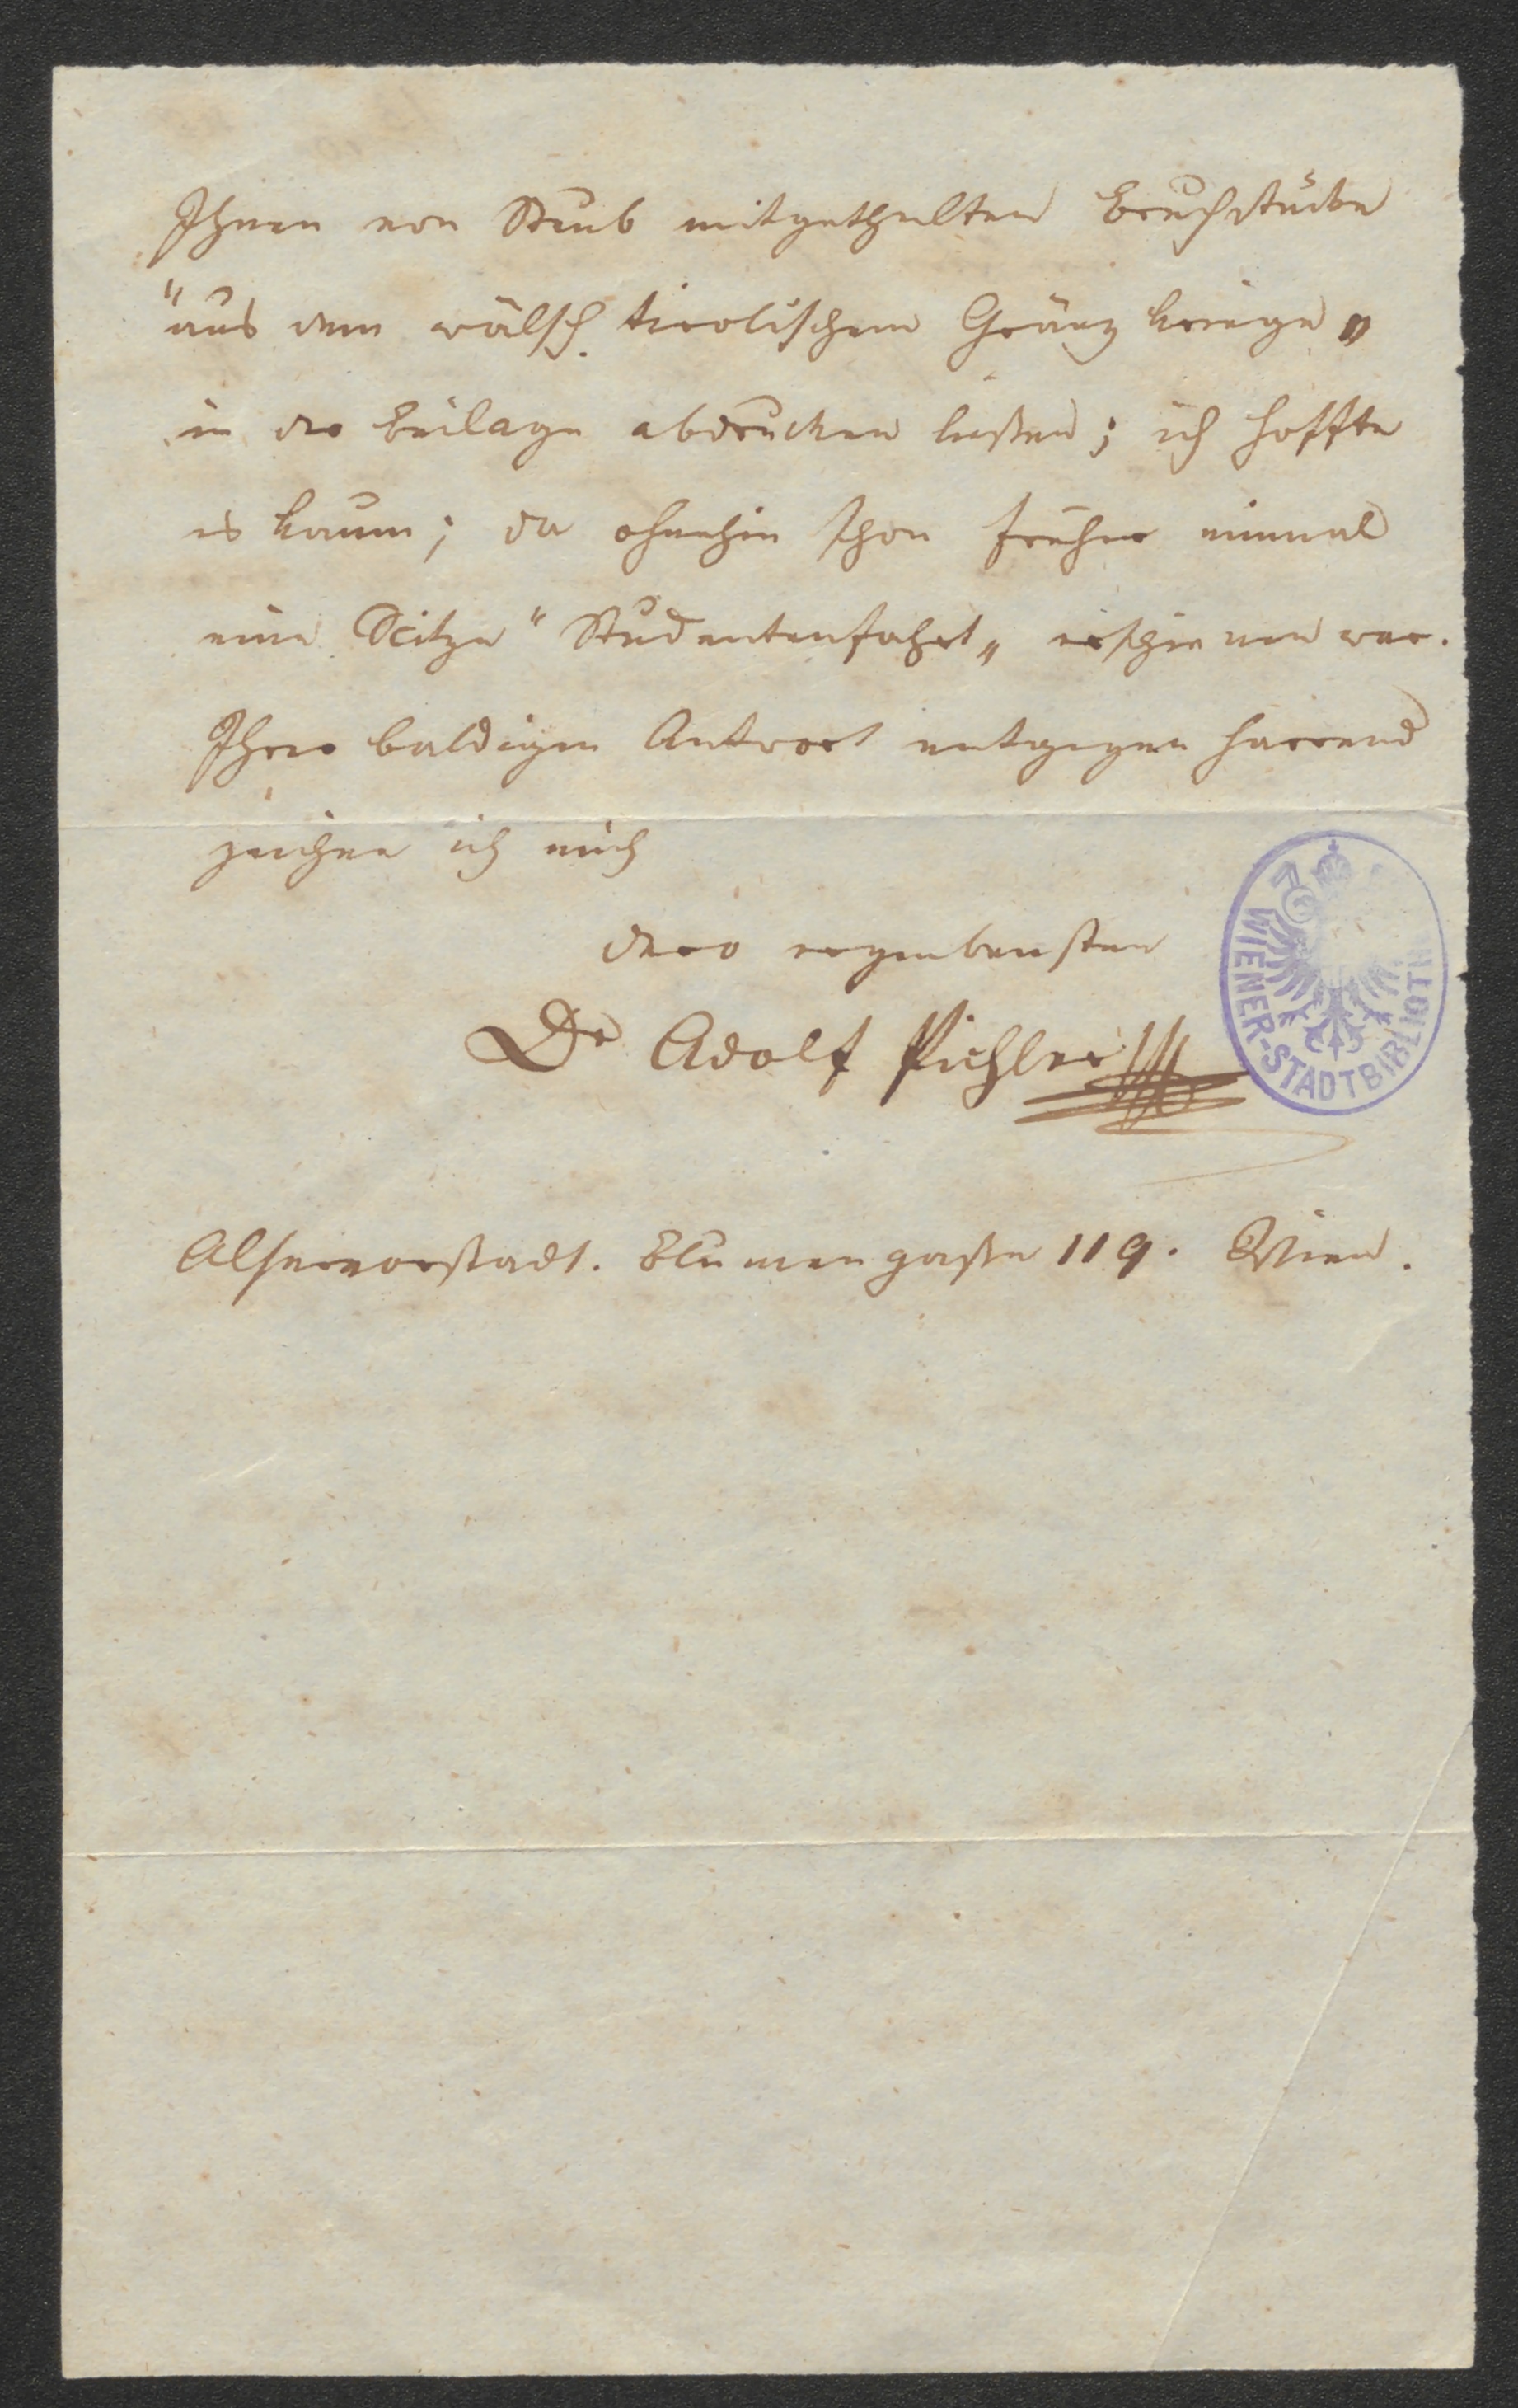 Ihnen von Steub mitgetheilten Bruchstücke
"aus dem wälsch tirolischem Gränz kriege„
in der Beilage abdrucken ließen; ich hoffte
es kaum; da ohnehin schon früher einmal
eine Scitze "Studentenfahrt„ erschienen war.
Ihrer baldigen Antwort entgegen harrend
zeichne ich mich
dero ergebensten
Dr Adolf Pichler
WIENER-STADTBIBLIOTH
Alservorstadt. Blumengaße 119. Wien.